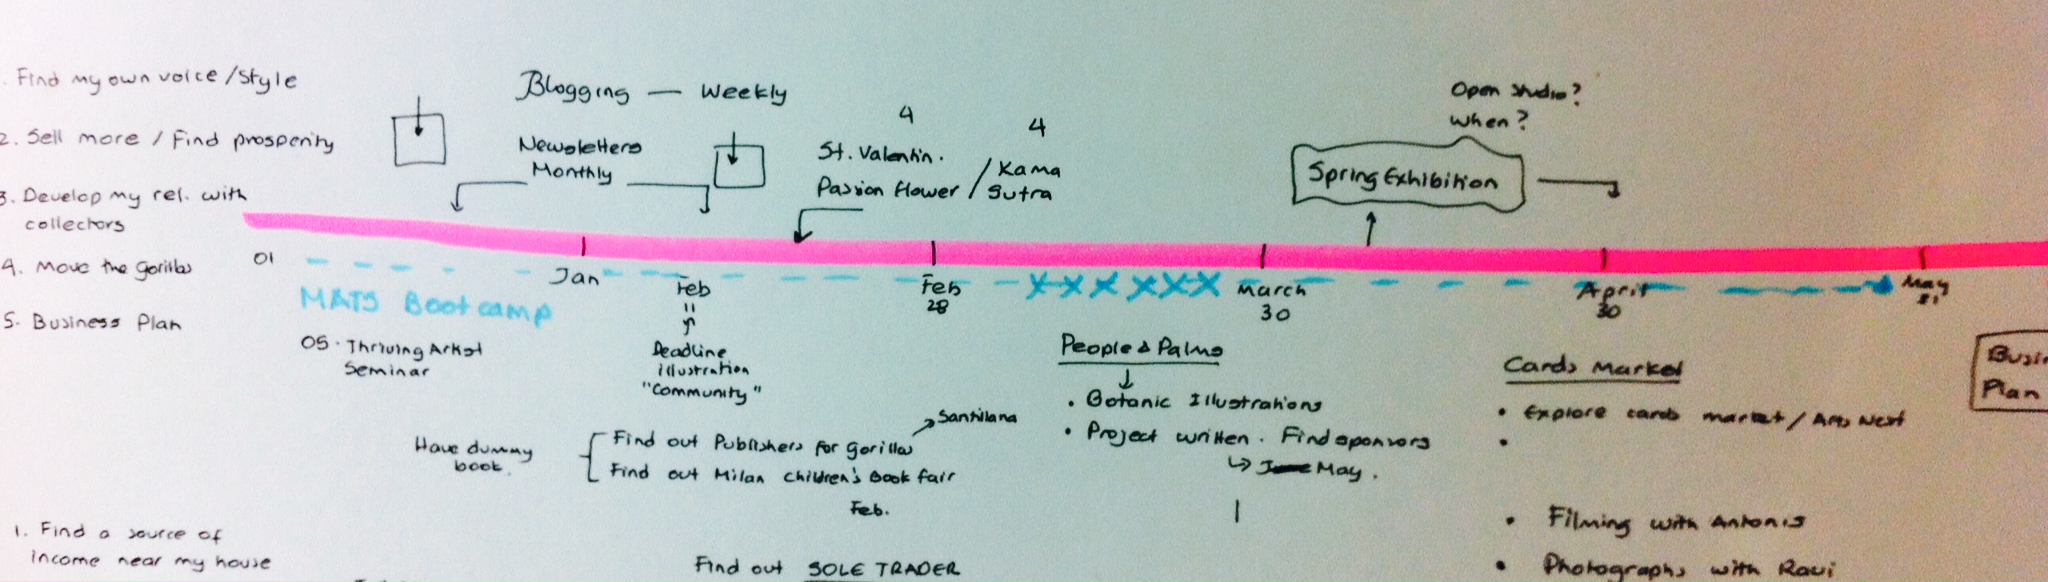 . Find my own voice/style
2. Sell more / Find prosperity
3. Develop my rel. with
collectors
4. Move the Gorillas
5. Business Plan
Blogging — Weekly
Newsletters
Monthly
4
St. Valentin.
Passion flower /
4
Kama
Sutra
Open Studio?
When?
Spring Exhibition
01
Jan
Feb
Feb
28
XXX XXX
March
30
April
30
May
31
MATS Bootcamp
05. Thriving Artist
Seminar
Deadline
illustration
"Community"
Have dummy
book.
Find out Publishers for Gorillas
Santillana
Find out Milan Children's Book fair
Feb.
People & Palms
• Botanic Illustrations
• Project written. Find sponsors
May.
Cards Market
• Explore cards market/ Arts West
•
• Filming with Antonis
• Photographs with Ravi
Plan
1. Find a source of
income near my house
Find out SOLE TRADER